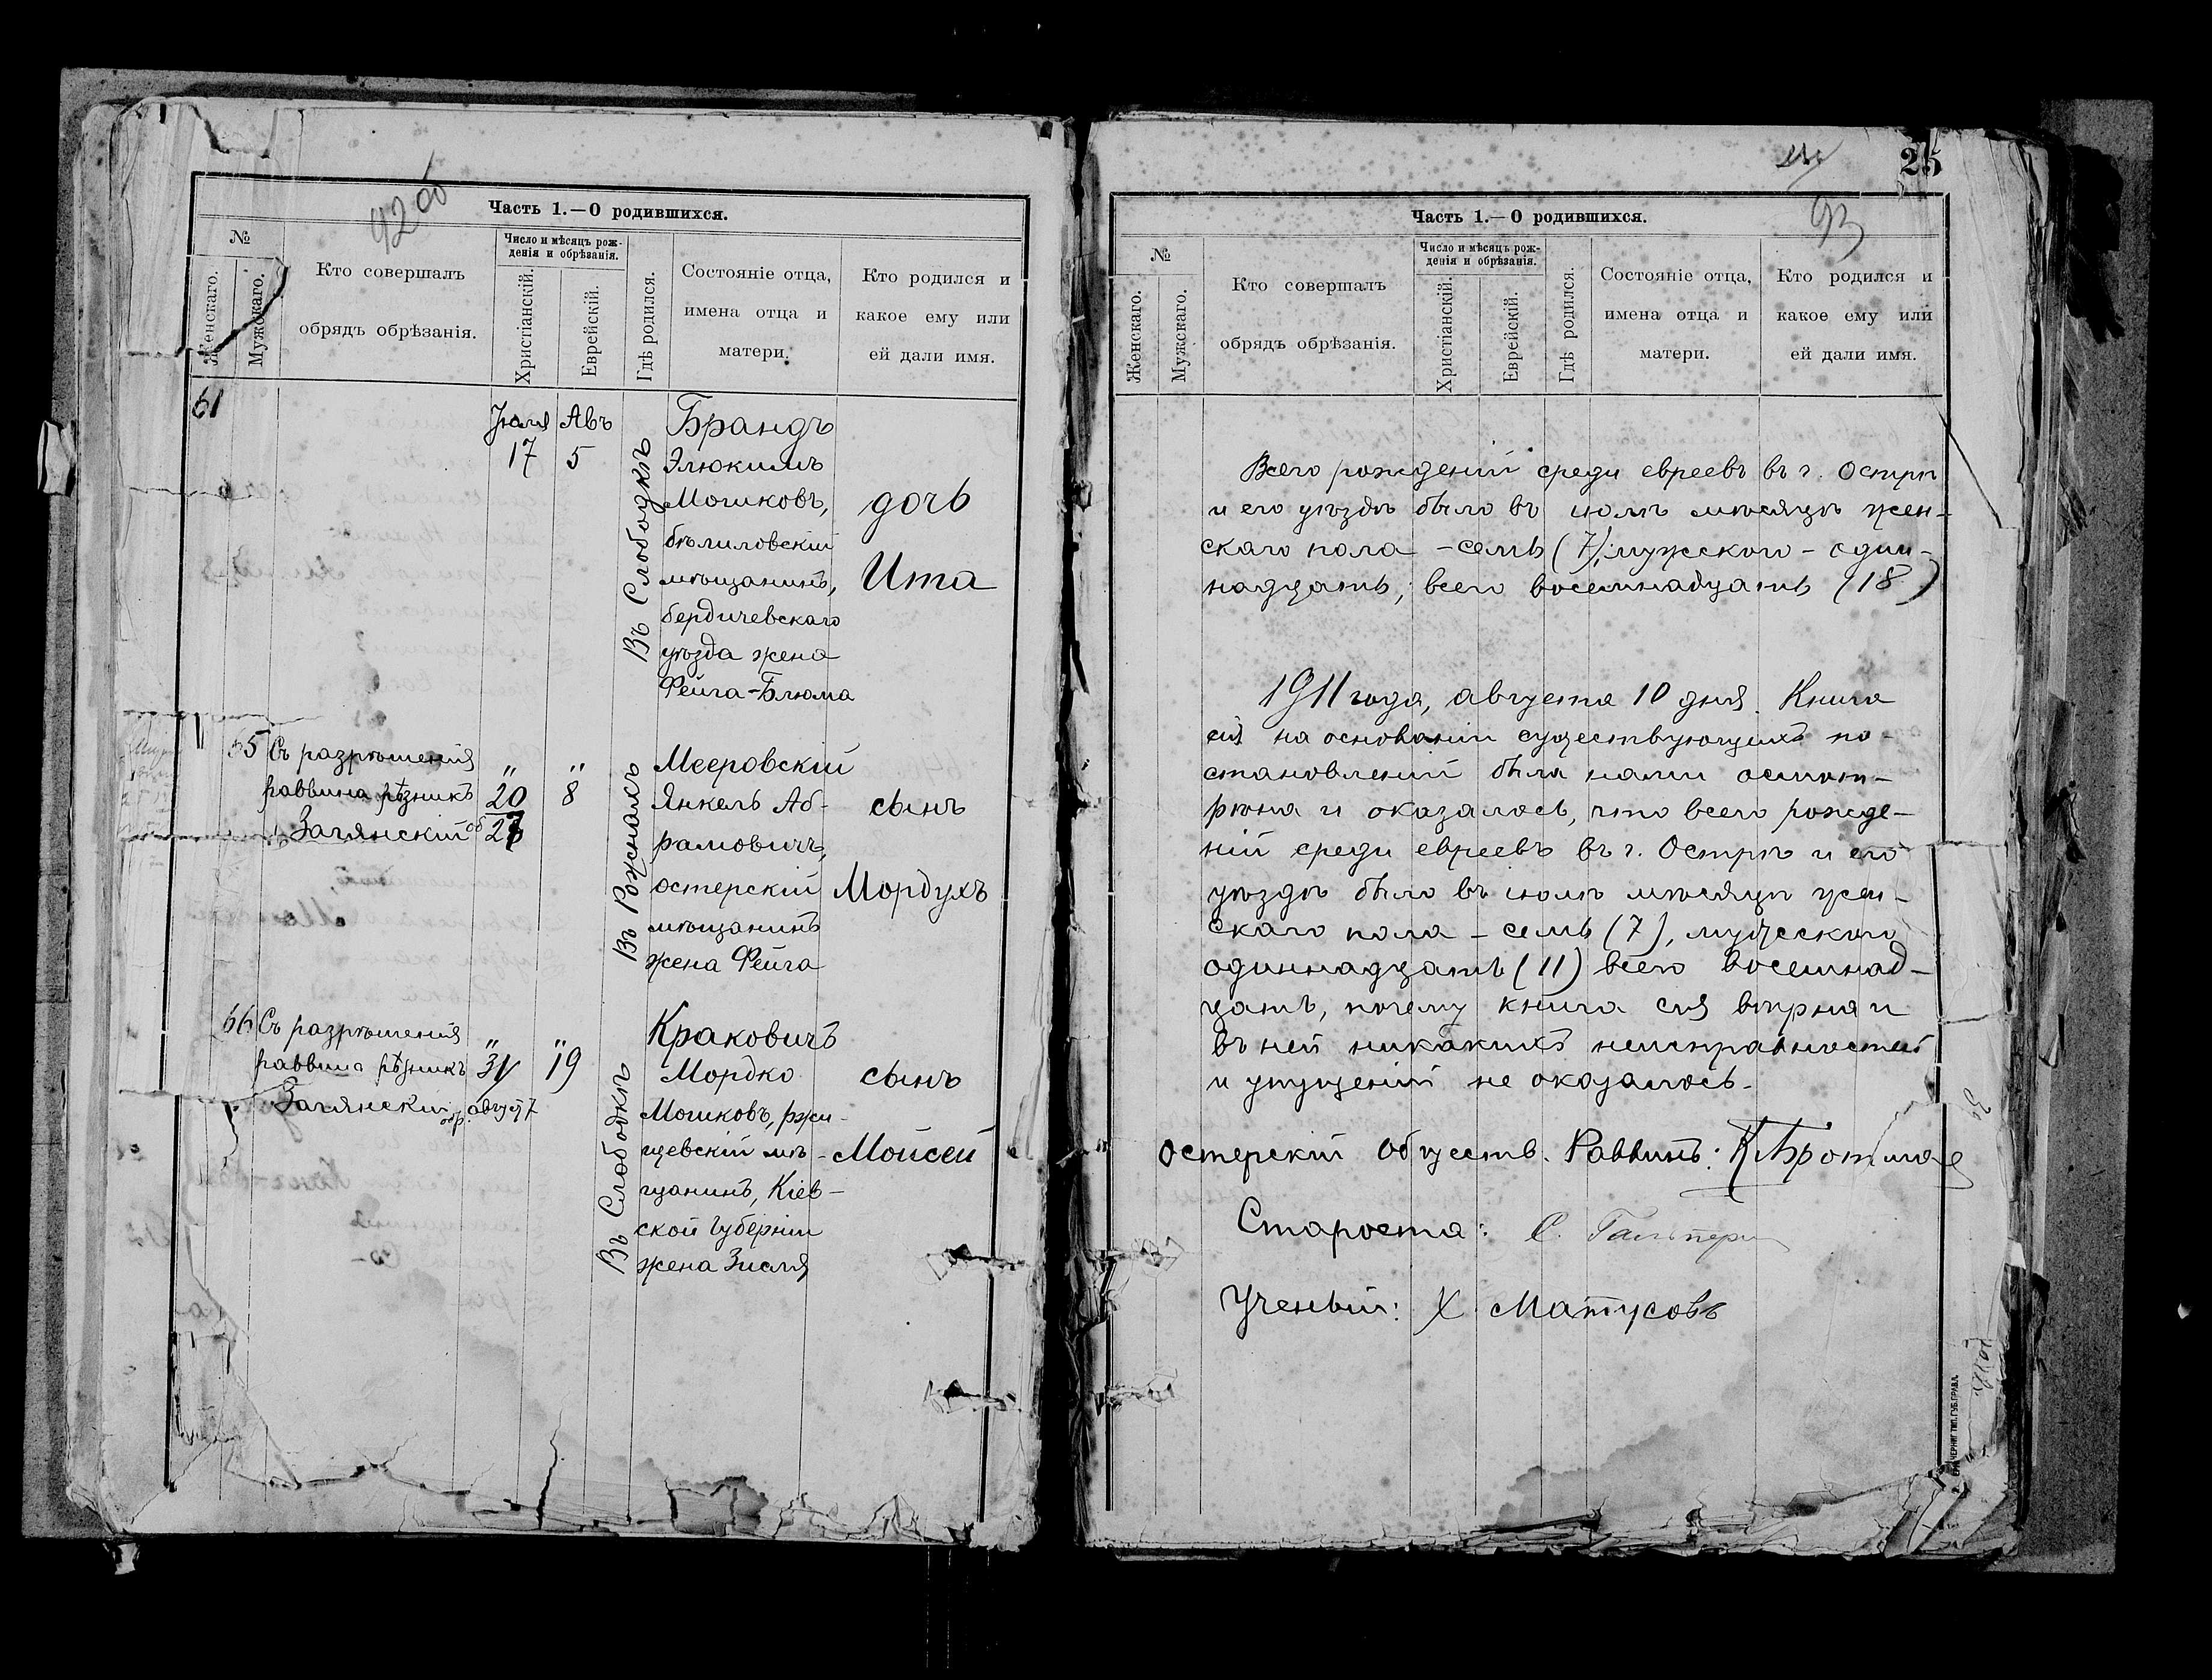 92 об
Часть 1.—О родившихся.
№
Женскаго.
Мужскаго.
Кто совершалъ
обрядъ обрѣзанія.
Число и мѣсяцъ рож-
денія и обрѣзанія.
Христіанскій.
Еврейскій.
Гдѣ родился.
Состояніе отца,
имена отца и
матери.
Кто родился и
какое ему или
ей дали имя.
61
Юля Авъ
17 5
Въ Слободкѣ
Брандъ
Элюкимъ
Мошковъ,
бѣлиловскій
мѣщанинъ,
бердичевскаго
уѣзда жена
Фейга-Блюма
дочь
Ита
65 Съ разрѣшенія
раввина рѣзникъ
Загянскій об
" "
20 8
27
Въ Рожнахъ
Мееровскій
Янкель Аб-
рамовичъ,
остерскій
мѣщанинъ
жена Фейга
сынъ
Мордухъ
66 Съ разрѣшенія
раввина рѣзникъ
Загянскій обр.
" "
31 19
август 7
Въ Слободкѣ
Краковичъ
Мордко
Мошковъ, ржи-
щевскій мѣ-
щанинъ, Кіев-
ской губерніи
жена Зисля
сынъ
Мойсей
25
93
Часть 1.—О родившихся.
№
Женскаго.
Мужскаго.
Кто совершалъ
обрядъ обрѣзанія.
Число и мѣсяцъ рож-
денія и обрѣзанія.
Христіанскій.
Еврейскій.
Гдѣ родился.
Состояніе отца,
имена отца и
матери.
Кто родился и
какое ему или
ей дали имя.
Всего рожденій среди евреевъ въ г. Острѣ
и его уѣздѣ было въ іюлѣ мѣсяцѣ жен-
скаго пола - семь (7), мужского - один-
надцать; всего восемнадцать (18)
1911 года, августа 10 дня. Книга
сія на основаніи существующихъ по-
становленій была нами осмот-
рѣна и оказалось, что всего рожде-
ній среди евреевъ въ г. Острѣ и его
уѣздѣ было въ іюлѣ мѣсяцѣ жен-
скаго пола - семь (7), мужского
одиннадцать (11) всего восемнад-
цать, почему книга сія вѣрна и
въ ней никакихъ неисправностей
и упущеній не оказалось.
Остерскій Обществ. Раввинъ:
Староста: С. Гальперин
Ученый: Х Матусовъ